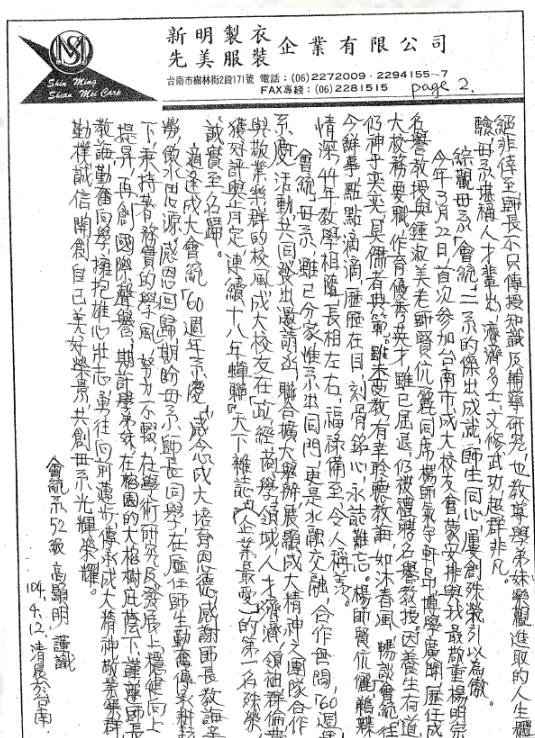 新明製衣
先美服裝 企業有限公司
Shin Ming
Shian Mei Corp
台南市樹林街2段171號 電話:(06)2272009・2294155~7
FAX專綫:(06)2281515
page 2.
經非倖至,師長不只傳授知識及輔導研究,也教導學弟妹樂觀進取的人生體
驗,母系堪稱人才輩出,濟濟多士,文修武功超群非凡。
綜觀母系「會統」二系的傑出成就,師生同心,屢創殊榮引以為傲。
今年3月22日首次參加台南市成大校友會蒙安排與我最敬重楊明宗
名譽教授與鍾淑美老師賢伉儷同席,楊師氣宇軒昂博學廣聞,歷任成
大校務要職,作育優秀英才,雖已屆退,仍被禮聘名譽教授,因養生有道,
仍神采奕奕,具儒者典範。雖未受教有幸聆聽教誨,如沐春風,暢談會統往
今鮮事點點滴滴,歷歷在目,刻骨銘心,永誌難忘。楊師賢伉儷鶼鰈
情深,44年教學相隨長相左右,福祿備至,令人稱羡。
「會統」母系,雖已分家惟系出同門,更是水融交融,合作無間,「60週年
系慶」活動共同發出邀請函,聯合擴大舉辦展顯成大精神之團隊合作
與敬業樂群的校風,成大校友在「政、經、商、學」領域,人才濟濟,領袖群倫,普
獲好評與肯定,連續十八年蟬聯「天下雜誌」「企業最愛」的第一名殊榮,
誠實至名歸。
適逢成大會統「60週年系慶」,感念成大培育恩德,感謝師長教誨辛
勞,飲水思源,感恩回歸,期盼母系師長同學在歷任師生勤奮傳承耕耘
下,秉持著務實的學風,努力不輟,在學術研究及發展上穩健向上
提昇,再創國際聲譽;期許學弟妹,在榕園的大榕樹庇蔭下,謹遵師長
教誨勤奮向學,擁抱雄心壯志,勇往向前邁步,傳承成大精神,敬業樂群,
勤樸誠信,開創自己美好榮景,共創母系光輝榮耀。
會統系52級 高顯明 謹識
104.4.12.清晨於台南.